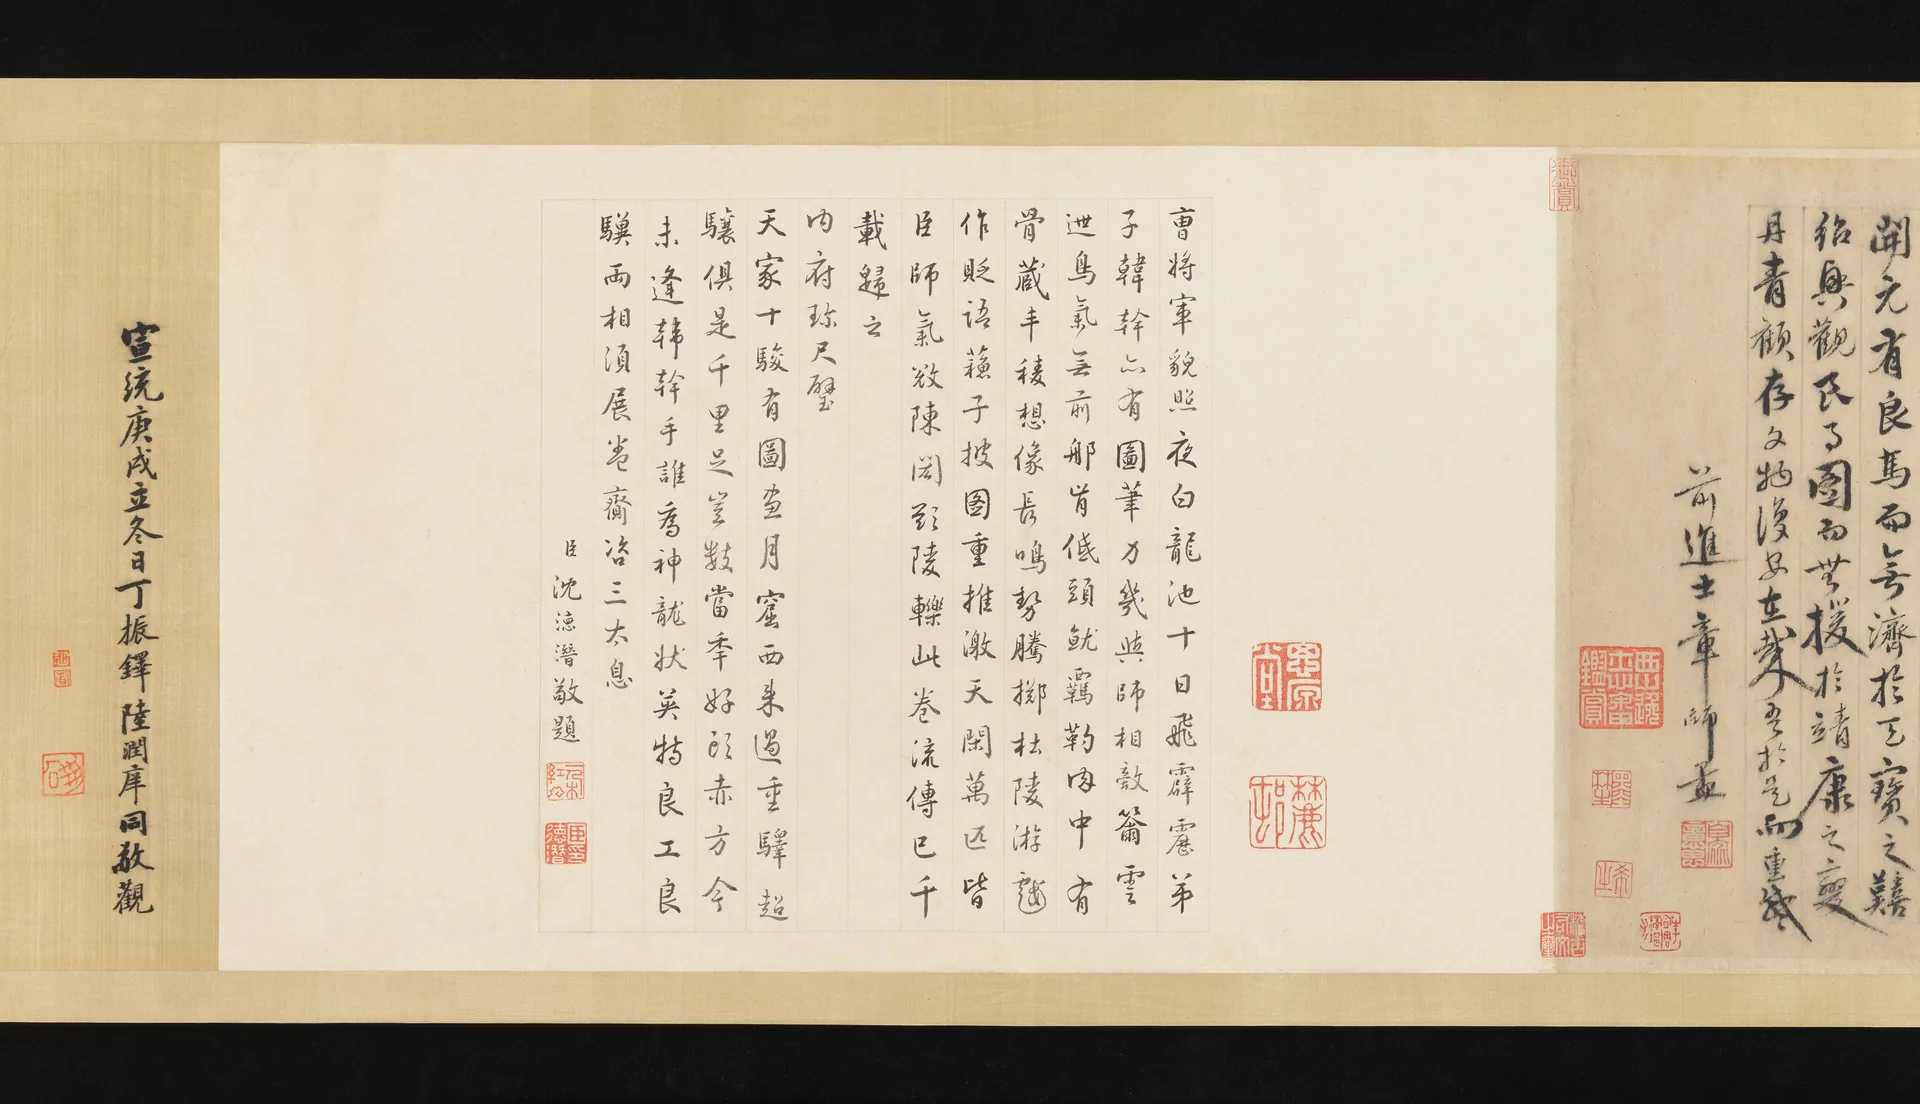 開元有良馬而無濟於天寶之囏
紹興觀良馬圖而無援於靖康之變
丹青顧存文物復安在哉吾於是而重感
前進士章師孟
曹將軍貌照夜白龍池十日飛霹靂弟
子韓幹亦有圖筆力幾與師相敵籋雲
迣鳥氣無前那肯低頭就羈靮肉中有
骨藏丰稜想像長鳴勢騰擲杜陵游戲
作貶語蘇子披圖重推激天閑萬匹皆
臣師氣敚陳閎陵轢此卷流傳已千
載歸之
內府珍尺璧
天家十駿有圖畫月窟西來過重驛超
驤俱是千里足豈數當年好頭赤方今
未逢韓幹手誰為神龍狀英特良工良
驥兩相須展卷齎咨三太息
臣沈德潛敬題
宣統庚戌立冬日丁振鐸陸潤庠同敬觀